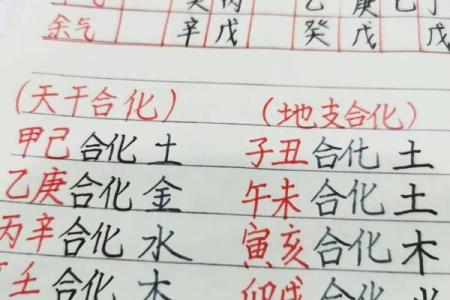 癸丙 乙庚己丁
余气 辛戊 癸戊 戊
(天干合化) (地支合化)
甲己合化土 子丑合化土
乙庚合化金 午未合化土
丙辛合化水 寅亥合化木
壬合化木 卯戌合化火